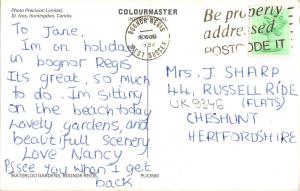 Photo Precision Limited,
St. Ives, Huntingdon, Cambs.
COLOURMASTER
BOGNOR REGIS
WEST SUSSEX
Be properly
addressed
POSTCODE IT
To Jane,
Im on holiday
in bognor Regis
Its great, so much
to do. Im sitting
on the beach today
Lovely gardens, and
beautifull scenery
Love Nancy
P.S see you when I get
back
Mrs. J SHARP
44, RUSSELL RIDE
UK 9346 (FLATS)
CHESHUNT
HERTFORDSHIRE
WATERLOO GARDENS, BOGNOR REGIS